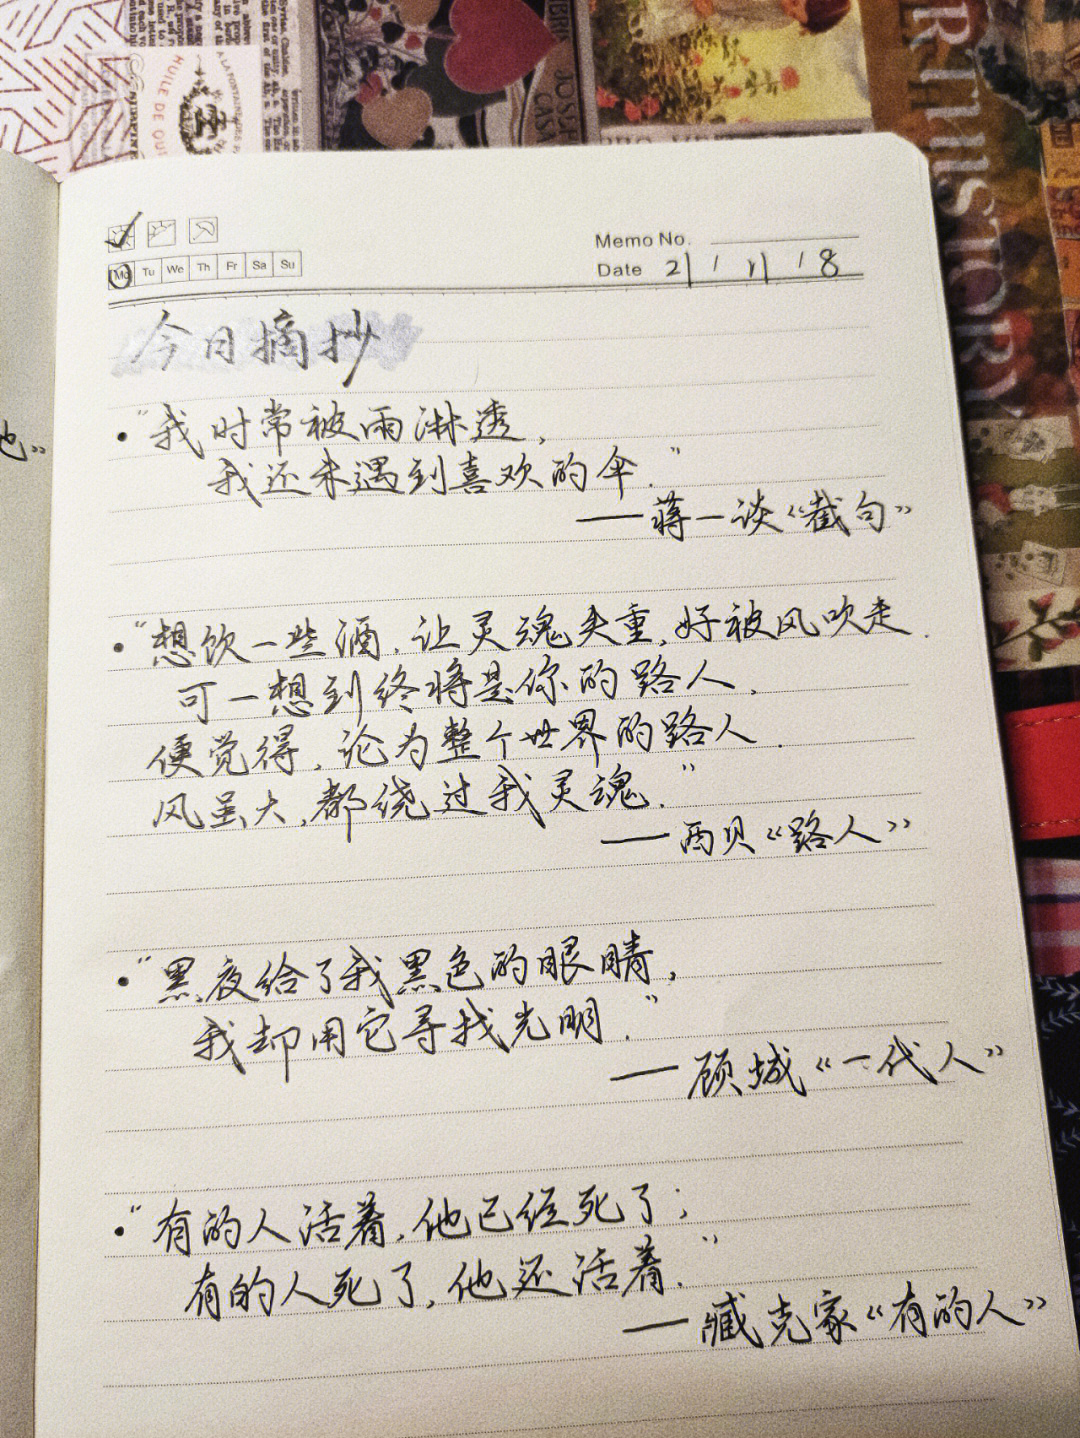 Memo No.
Mo Tu We Th Fr Sa Su
Date 21 / 1 / 18
今日摘抄
• “我时常被雨淋透,
我还未遇到喜欢的伞.”
——蒋一谈《截句》
• “想饮一些酒,让灵魂失重,好被风吹走.
可一想到终将是你的路人,
便觉得,论为整个世界的路人.
风虽大,都绕过我灵魂.”
——西贝《路人》
• “黑夜给了我黑色的眼睛,
我却用它寻找光明.”
——顾城《一代人》
• “有的人活着,他已经死了;
有的人死了,他还活着.”
——臧克家《有的人》
也》
HISTORY
HUILE DE
JOSEPH
CASA